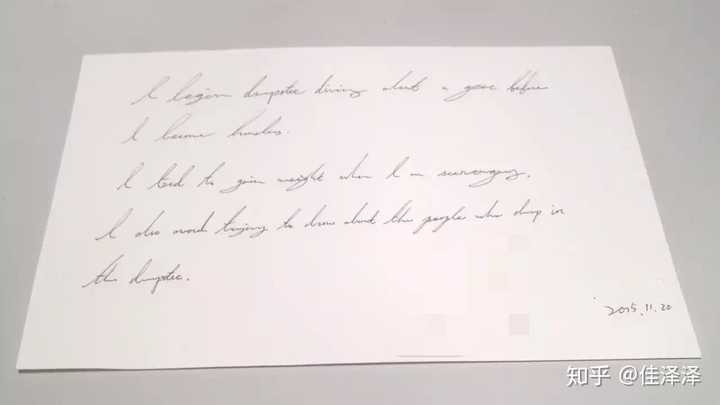 I began dumpster diving about a year before
I became homeless.
I tend to gain weight when I am scavenging.
I also avoid trying to draw about the people who dump in
the dumpster.
2015.11.20
知乎 @佳泽泽